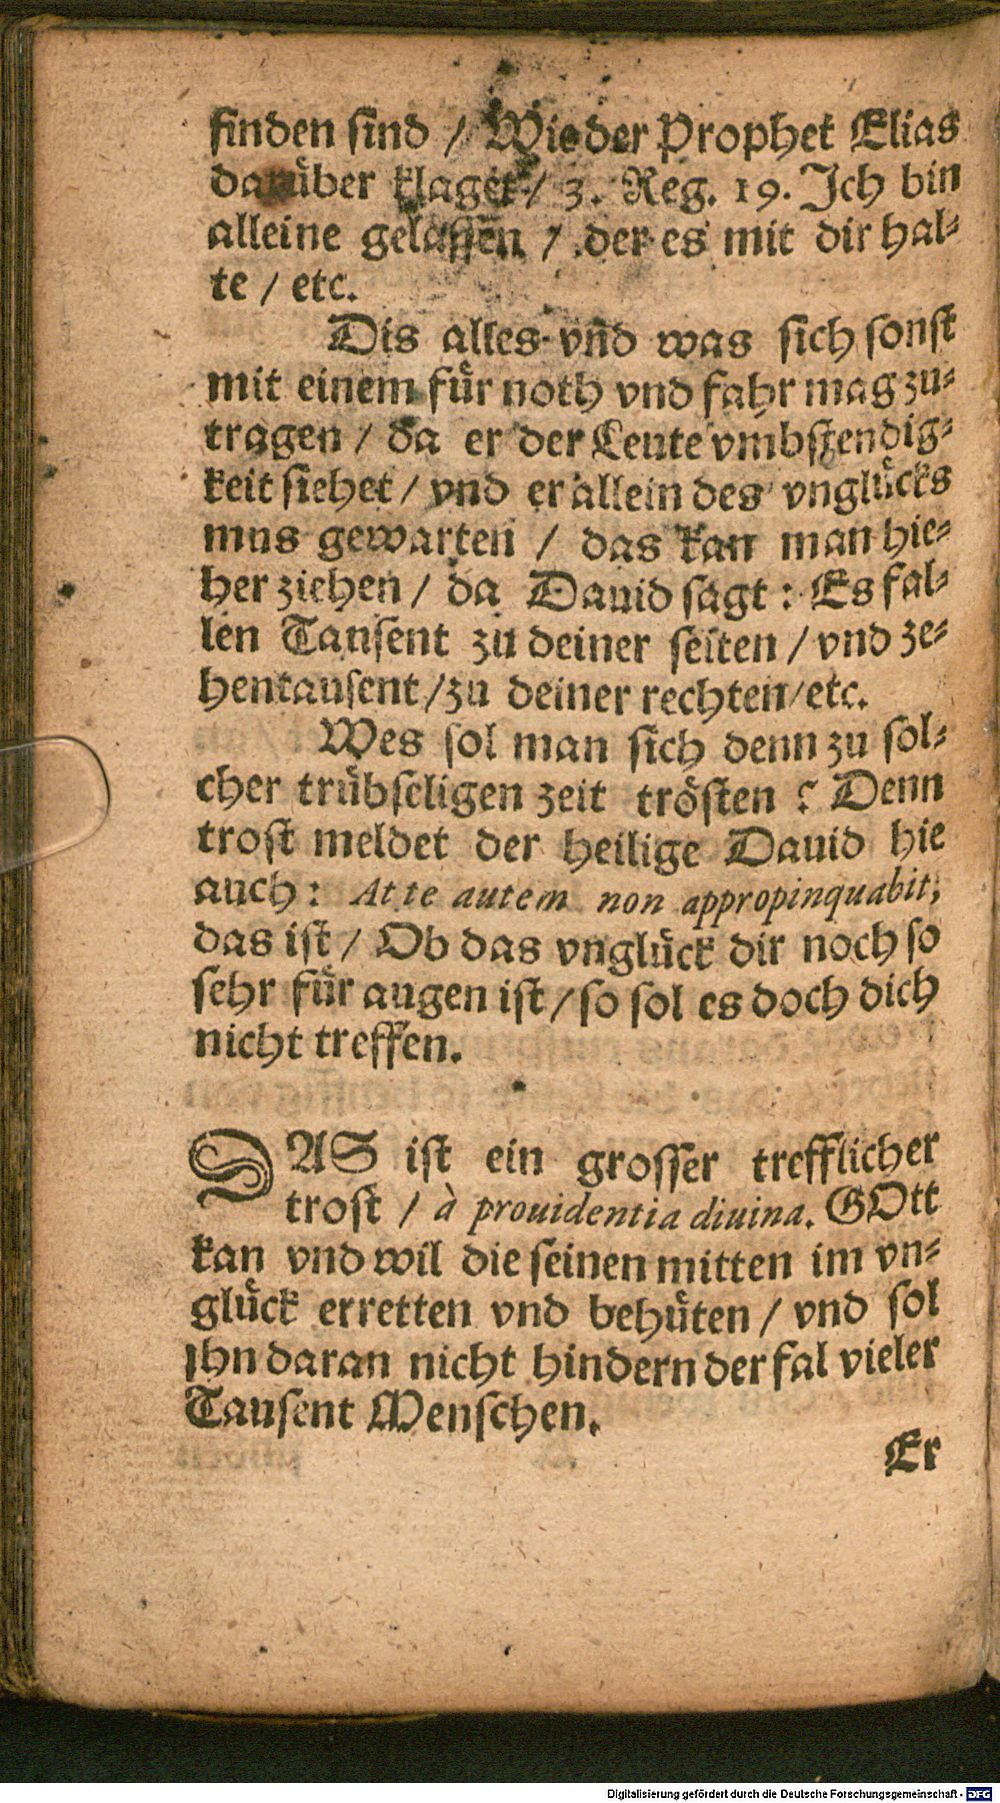 finden sind / Wie der Prophet Elias
darüber klaget / 3. Reg. 19. Ich bin
alleine gelassen / der es mit dir hal-
te / etc.
Dis alles vnd was sich sonst
mit einem für noth vnd fahr mag zu-
tragen / da er der Leute vmbstendig-
keit siehet / vnd er allein des vnglücks
mus gewarten / das kan man hie-
her ziehen / da Dauid sagt: Es fal-
len Tausent zu deiner seiten / vnd ze-
hentausent / zu deiner rechten / etc.
Wes sol man sich denn zu sol-
cher trübseligen zeit trösten? Denn
trost meldet der heilige Dauid hie
auch: At te autem non appropinquabit,
das ist / Ob das vnglück dir noch so
sehr für augen ist / so sol es doch dich
nicht treffen.
DAS ist ein grosser trefflicher
trost / à prouidentia diuina. GOtt
kan vnd wil die seinen mitten im vn-
glück erretten vnd behüten / vnd sol
ihn daran nicht hindern der fal vieler
Tausent Menschen.
Er
Digitalisierung gefördert durch die Deutsche Forschungsgemeinschaft - DFG